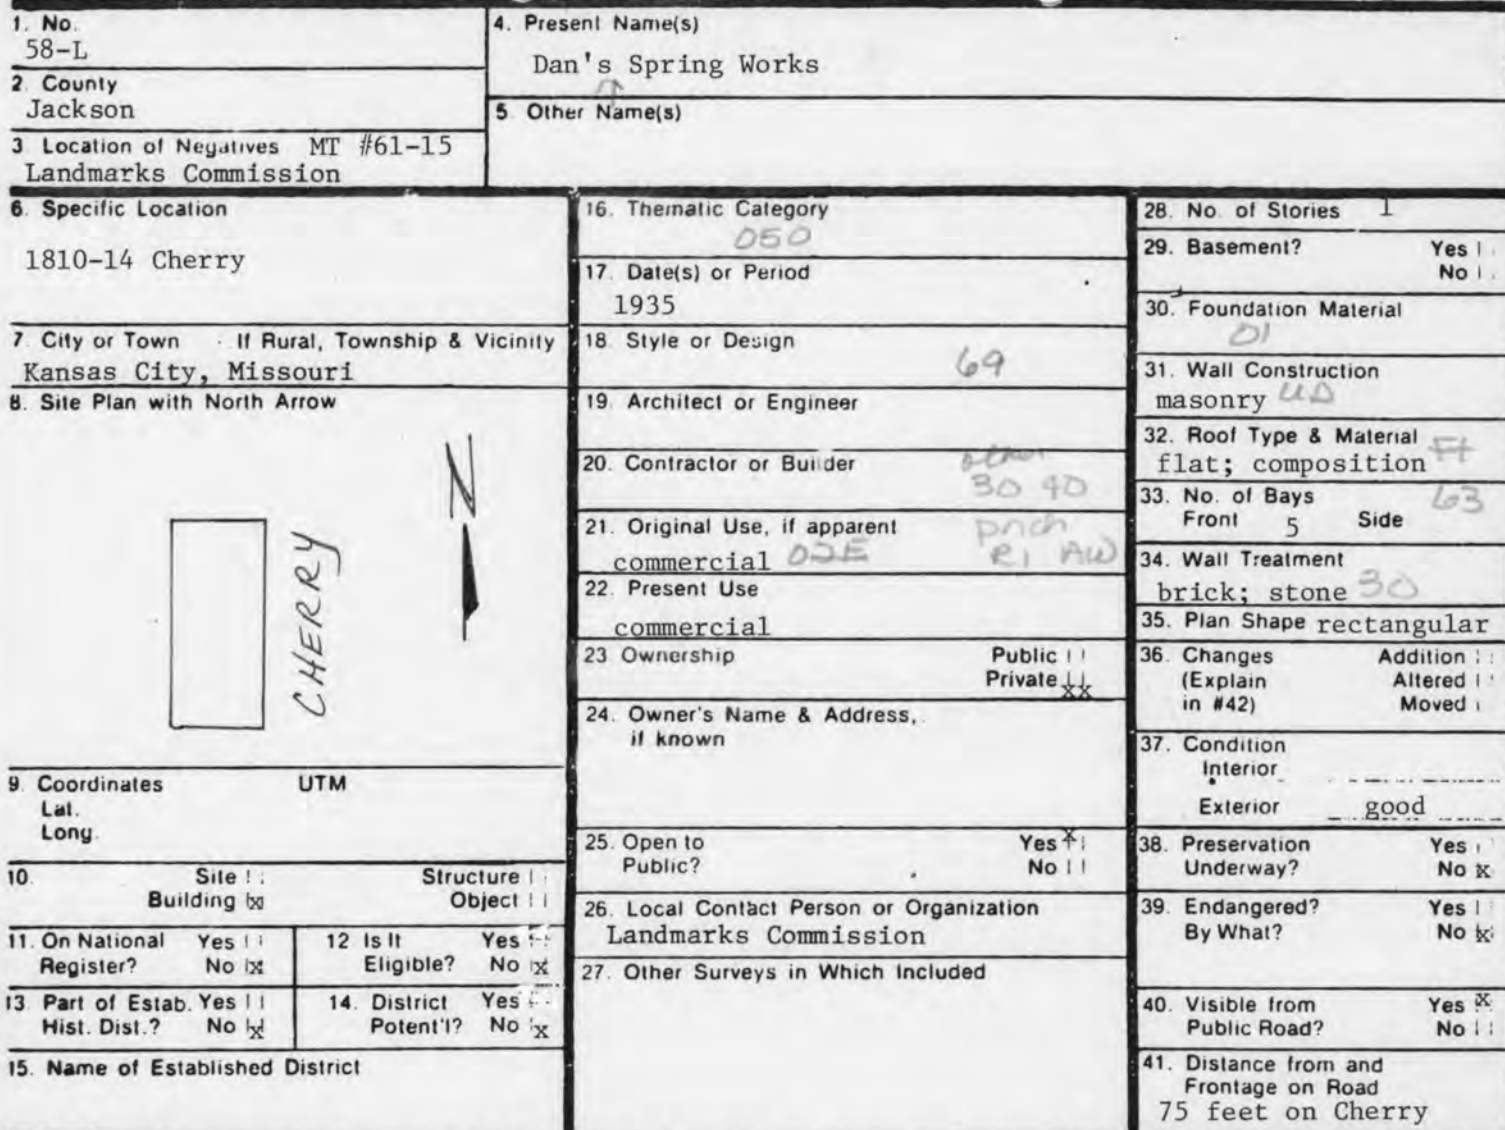 1. No.
58-L
2. County
Jackson
3. Location of Negatives MT #61-15
Landmarks Commission
4. Present Name(s)
Dan's Spring Works
5. Other Name(s)
6. Specific Location
1810-14 Cherry
7. City or Town If Rural, Township & Vicinity
Kansas City, Missouri
8. Site Plan with North Arrow
N
CHERRY
9. Coordinates UTM
Lat.
Long.
10. Site Structure
Building x Object
11. On National Yes
Register? No x
12 Is It Yes
Eligible? No x
13. Part of Estab. Yes
Hist. Dist.? No x
14. District Yes
Potent'l? No x
15. Name of Established District
16. Thematic Category
050
17. Date(s) or Period
1935
18. Style or Design
69
19. Architect or Engineer
20. Contractor or Builder other
30 40
21. Original Use, if apparent prch
commercial 02E R1 AW
22. Present Use
commercial
23 Ownership Public
Private xx
24. Owner's Name & Address,
if known
25. Open to Yes x
Public? No
26. Local Contact Person or Organization
Landmarks Commission
27. Other Surveys in Which Included
28. No. of Stories 1
29. Basement? Yes
No
30. Foundation Material
01
31. Wall Construction
masonry UD
32. Roof Type & Material Ft
flat; composition
33. No. of Bays 63
Front 5 Side
34. Wall Treatment
brick; stone 30
35. Plan Shape rectangular
36. Changes Addition
(Explain Altered
in #42) Moved
37. Condition
Interior
Exterior good
38. Preservation Yes
Underway? No x
39. Endangered? Yes
By What? No x
40. Visible from Yes x
Public Road? No
41. Distance from and
Frontage on Road
75 feet on Cherry